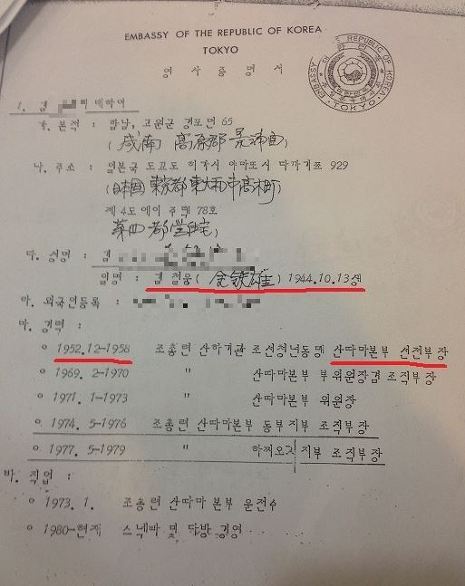 EMBASSY OF THE REPUBLIC OF KOREA
TOKYO
영 사 증 명 서
EMBASSY REPUBLIC OF KOREA TOKYO
1. 경 에 대하여
가. 본적 : 함남, 고원군 경포면 65
(咸南 高原郡 景浦面)
나. 주소 : 일본국 도꾜도 히가시 야마또시 다까기쪼 929
(日本国 東京都 東大和市 高木町)
제 4도 에이 주택 78호
第四 都営住宅)
다. 성명 :
일명 : 김 철웅 (金鉄雄) 1944.10.13생
라. 외국인등록 :
마. 경력 :
o 1952.12-1958 조총련 산하기관 조선청년동맹 산따마본부 선전부장
o 1969. 2-1970 " 산따마본부 부위원장겸 조직부장
o 1971. 1-1973 " 산따마본부 위원장
o 1974. 5-1976 조총련 산따마본부 동부지부 조직부장
o 1977. 5-1979 " 하찌오지 지부 조직부장
바. 직업 :
o 1973. 1. 조총련 산따마 본부 운전수
o 1980-현재 스넥빠 및 다방 경영